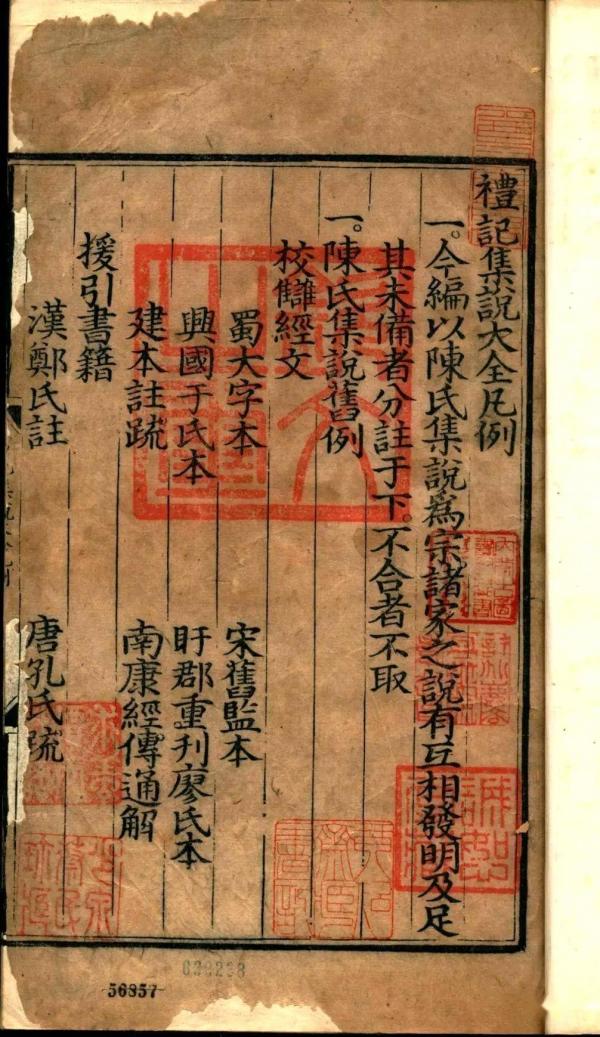 禮記集說大全凡例
一。今編以陳氏集說爲宗諸家之說有互相發明及足
其未備者分註于下。不合者不取
一。陳氏集說舊例
校讎經文
蜀大字本 宋舊監本
興國于氏本 盱郡重刊廖氏本
建本註䟽 南康經傳通解
援引書籍
漢鄭氏註 唐孔氏䟽
56857